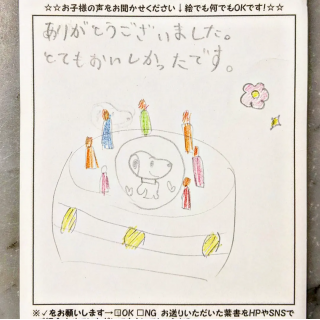 ☆☆お子様の声をお聞かせください↓絵でも何でもOKです!☆☆
ありがとうございました。
とてもおいしかったです。
※✓をお願いします→☑OK □NG お送りいただいた葉書をHPやSNSで